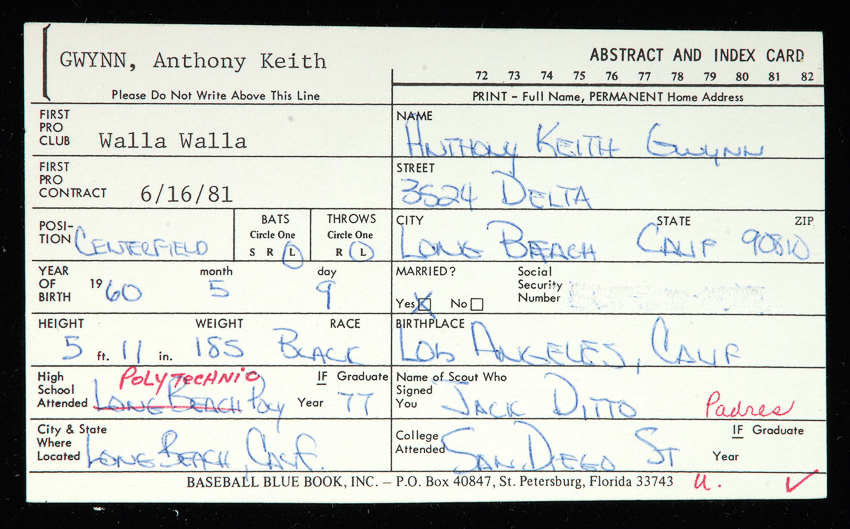 GWYNN, Anthony Keith
ABSTRACT AND INDEX CARD
72 73 74 75 76 77 78 79 80 81 82
Please Do Not Write Above This Line
PRINT - Full Name, PERMANENT Home Address
FIRST PRO CLUB Walla Walla
NAME ANTHONY KEITH GWYNN
FIRST PRO CONTRACT 6/16/81
STREET 3524 DELTA
POSI-TION CENTERFIELD
BATS Circle One S R L
THROWS Circle One R L
CITY LONG BEACH STATE CALIF ZIP 90810
YEAR OF BIRTH 1960 month 5 day 9
MARRIED? Yes X No
Social Security Number
HEIGHT 5 ft. 11 in. WEIGHT 185 RACE BLACK
BIRTHPLACE LOS ANGELES, CALIF
High School Attended LONG BEACH POLY POLYTECHNIC IF Graduate Year 77
Name of Scout Who Signed You JACK DITTO Padres
City & State Where Located LONG BEACH, CALIF.
College Attended SAN DIEGO ST IF Graduate Year
BASEBALL BLUE BOOK, INC. – P.O. Box 40847, St. Petersburg, Florida 33743 u. ✓